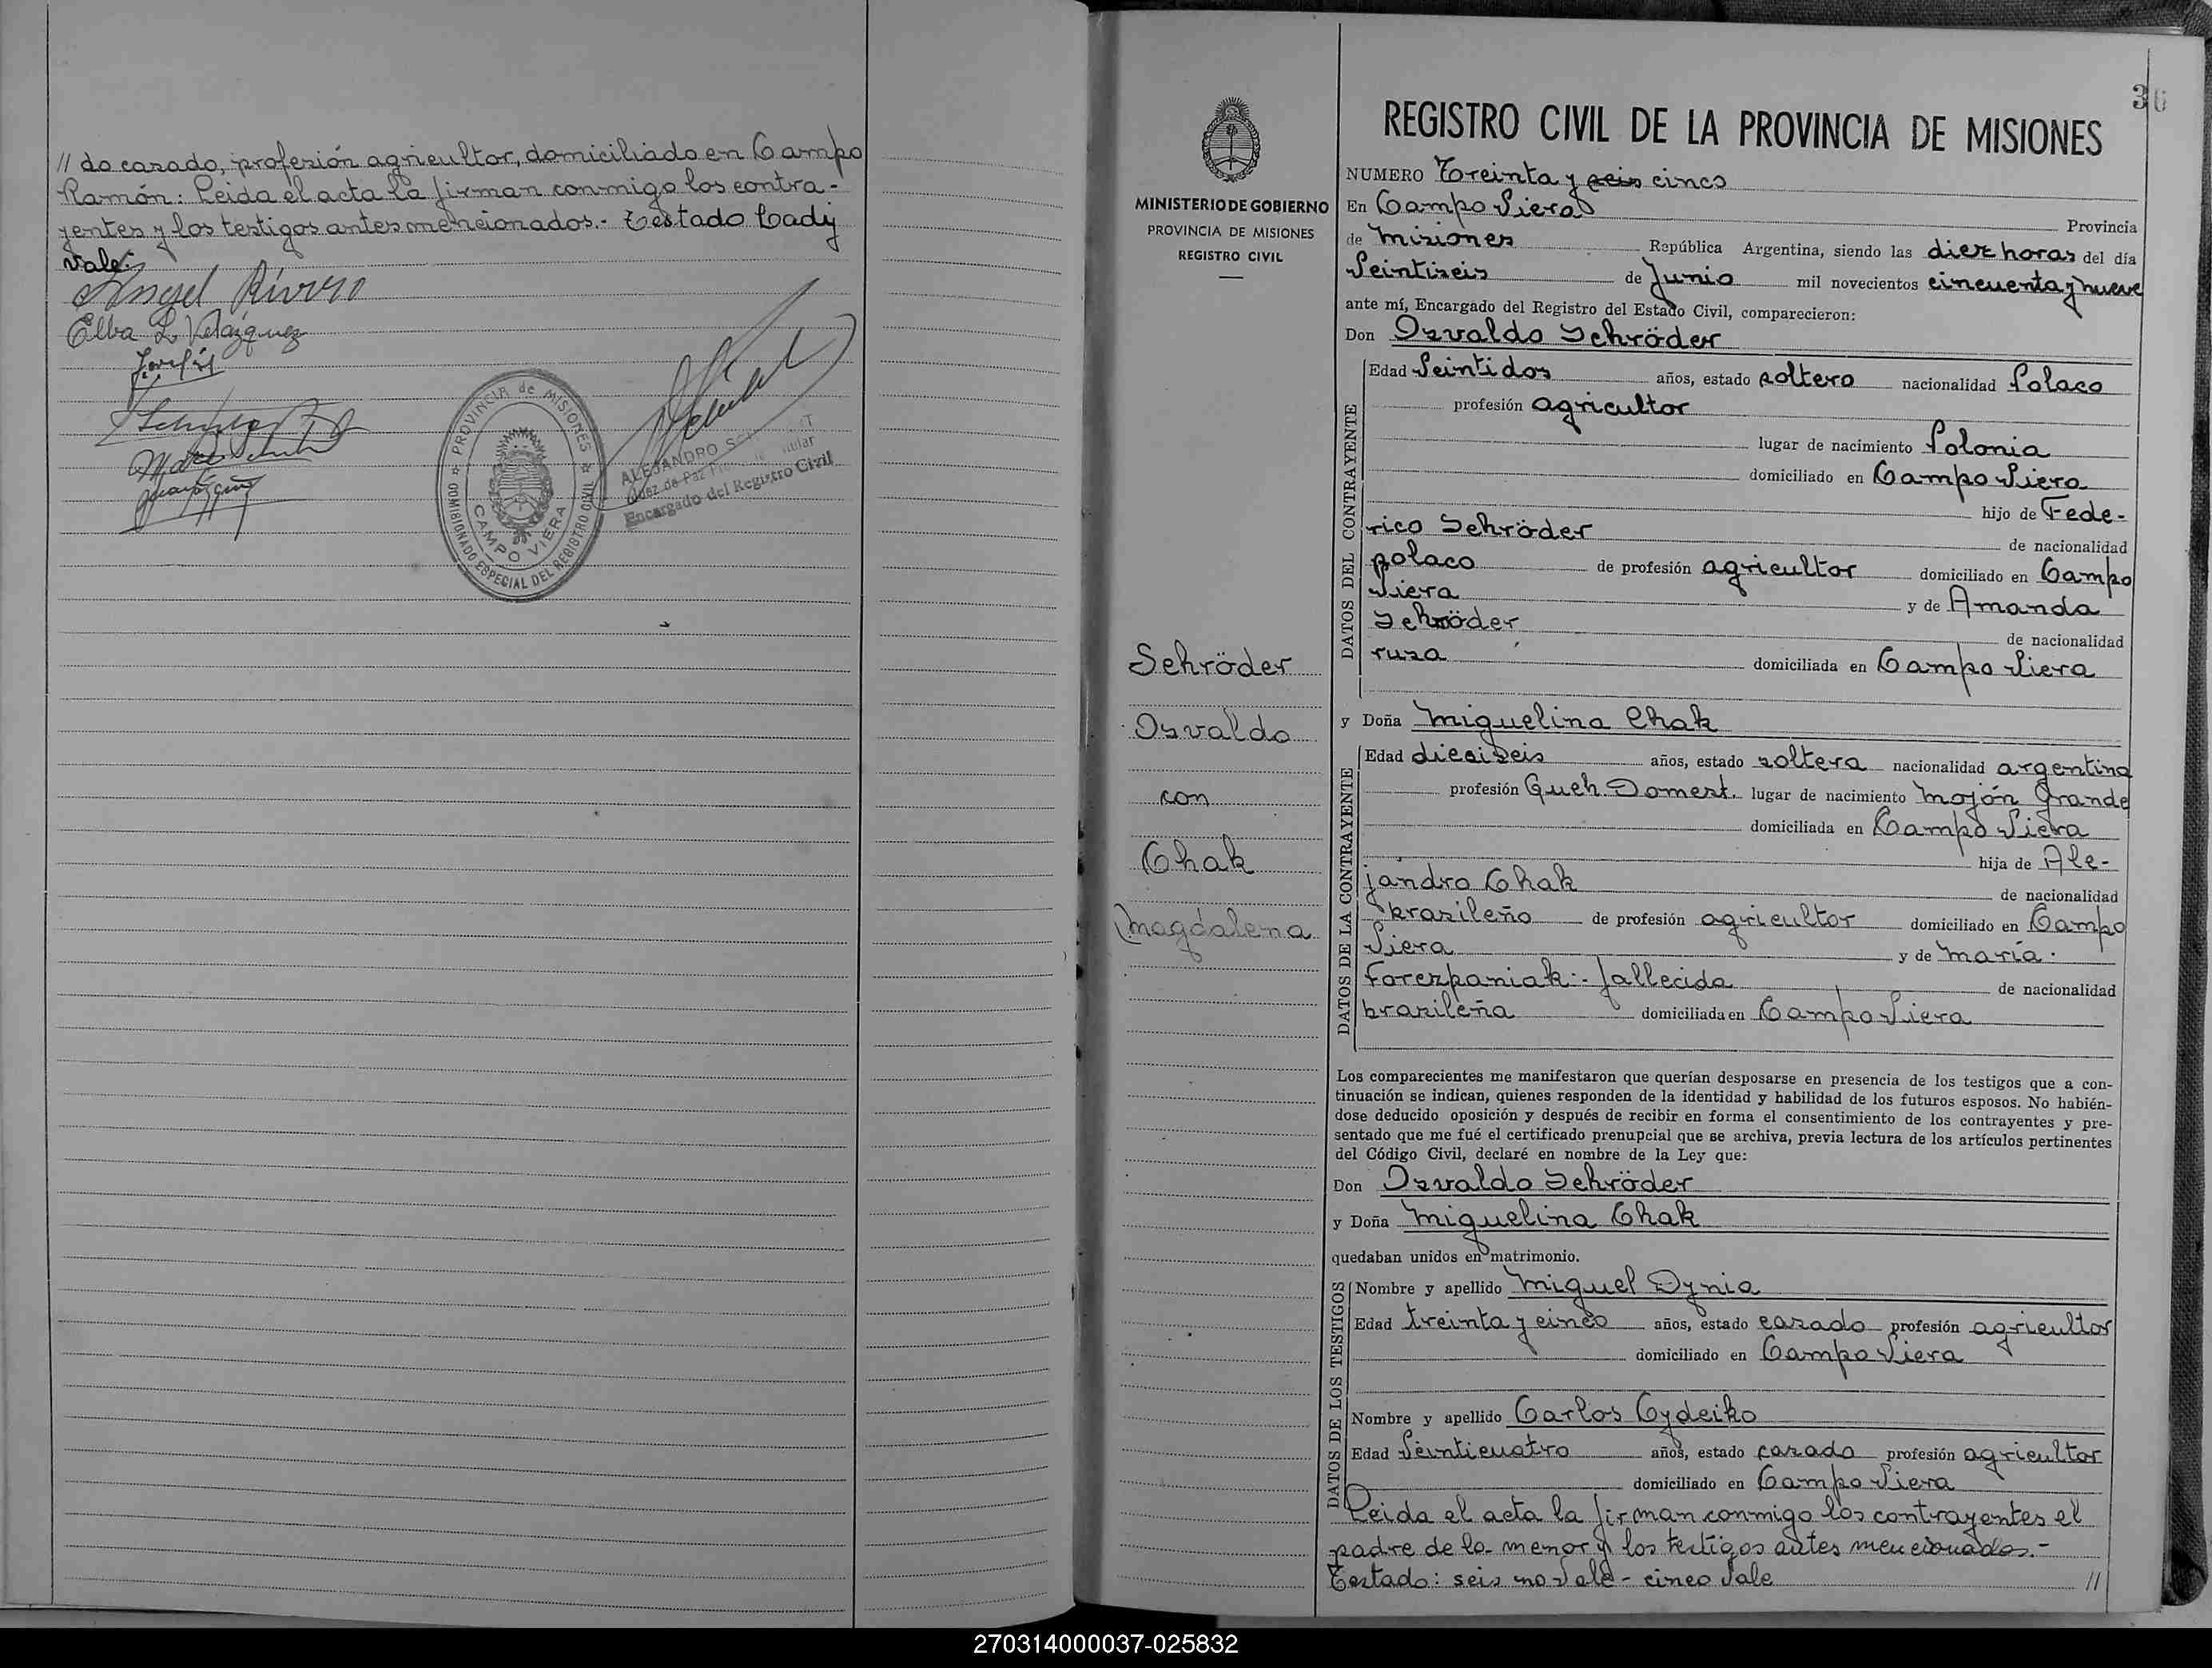 // do casado, profesión agricultor, domiciliado en Campo
Ramón: Leida el acta la firman conmigo los contra-
yentes y los testigos antes mencionados.- Testado Cady
Vale:
Angel Rivero
Elba L. Velázquez
PROVINCIA de MISIONES
COMISIONADO ESPECIAL DEL REGISTRO CIVIL
CAMPO VIERA
ALEJANDRO
Juez de Paz
Encargado del Registro Civil
36
MINISTERIO DE GOBIERNO
PROVINCIA DE MISIONES
REGISTRO CIVIL
Schröder
Osvaldo
con
Chak
Magdalena
REGISTRO CIVIL DE LA PROVINCIA DE MISIONES
NUMERO Treinta y seis cinco
En Campo Viera Provincia
de Misiones República Argentina, siendo las diez horas del día
Veintiseis de Junio mil novecientos cincuenta y nueve
ante mí, Encargado del Registro del Estado Civil, comparecieron:
Don Osvaldo Schröder
DATOS DEL CONTRAYENTE
Edad Veintidos años, estado soltero nacionalidad Polaco
profesión agricultor
lugar de nacimiento Polonia
domiciliado en Campo Viera
hijo de Fede-
rico Schröder de nacionalidad
polaco de profesión agricultor domiciliado en Campo
Viera y de Amanda
Schröder de nacionalidad
rusa domiciliada en Campo Viera
y Doña Miguelina Chak
DATOS DE LA CONTRAYENTE
Edad dieciseis años, estado soltera nacionalidad argentina
profesión Queh. Domest. lugar de nacimiento Mojón Grande
domiciliada en Campo Viera
hija de Ale-
jandro Chak de nacionalidad
brasileño de profesión agricultor domiciliado en Campo
Viera y de María
Forezpaniak:- fallecida de nacionalidad
brasileña domiciliada en Campo Viera
Los comparecientes me manifestaron que querían desposarse en presencia de los testigos que a con-
tinuación se indican, quienes responden de la identidad y habilidad de los futuros esposos. No habién-
dose deducido oposición y después de recibir en forma el consentimiento de los contrayentes y pre-
sentado que me fué el certificado prenupcial que se archiva, previa lectura de los artículos pertinentes
del Código Civil, declaré en nombre de la Ley que:
Don Osvaldo Schröder
y Doña Miguelina Chak
quedaban unidos en matrimonio.
DATOS DE LOS TESTIGOS
Nombre y apellido Miguel Dynia
Edad treinta y cinco años, estado casado profesión agricultor
domiciliado en Campo Viera
Nombre y apellido Carlos Cydeiko
Edad Veinticuatro años, estado casado profesión agricultor
domiciliado en Campo Viera
Leida el acta la firman conmigo los contrayentes el
padre de la menor y los testigos antes mencionados.-
Testado: seis no Vale - cinco Vale //
270314000037-025832